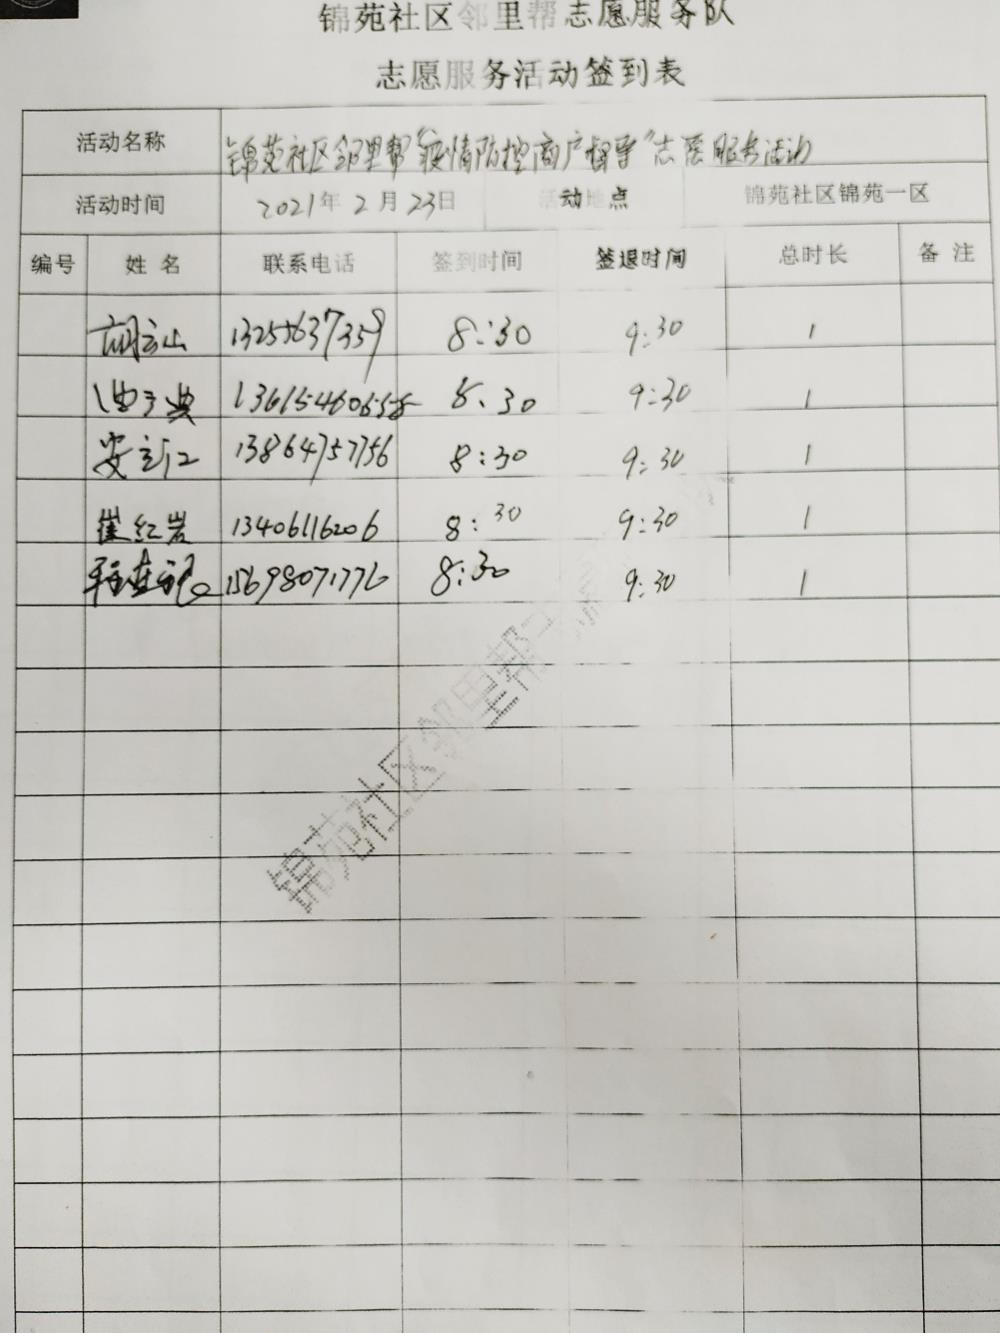 锦苑社区邻里帮志愿服务队
志愿服务活动签到表
活动名称 锦苑社区邻里帮“疫情防控商户督导”志愿服务活动
活动时间 2021年 2月 23日 活动地点 锦苑社区锦苑一区
编号 姓名 联系电话 签到时间 签退时间 总时长 备注
胡云山 13255637359 8:30 9:30 1
8.30 9:30 1
安立江 13864757756 8:30 9:30 1
崔红岩 13406116206 8:30 9:30 1
15698071776 8:30 9:30 1
锦苑社区邻里帮